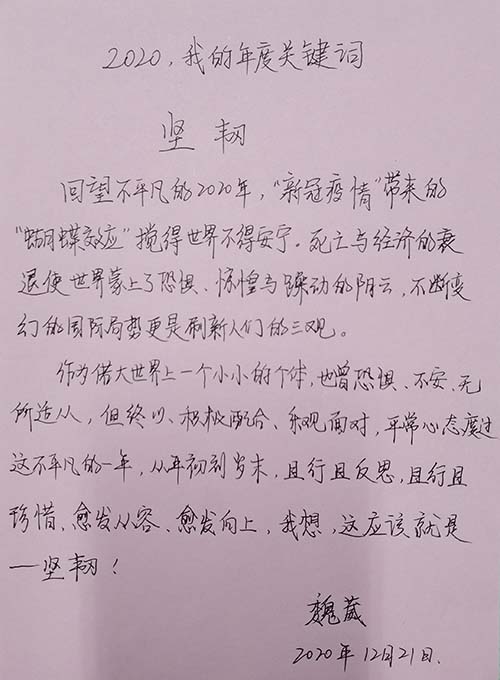 2020，我的年度关键词
坚韧
回望不平凡的2020年，"新冠疫情"带来的
"蝴蝶效应"搅得世界不得安宁。死亡与经济的衰
退使世界蒙上了恐惧、惊惶与躁动的阴云，不断变
幻的国际局势更是刷新人们的三观。
作为偌大世界上一个小小的个体，也曾恐惧、不安、无
所适从，但终以、积极配合、乐观面对，平常心态度过
这不平凡的一年，从年初到岁末，且行且反思，且行且
珍惜、愈发从容、愈发向上，我想，这应该就是
—坚韧！
魏葳
2020年12月21日.